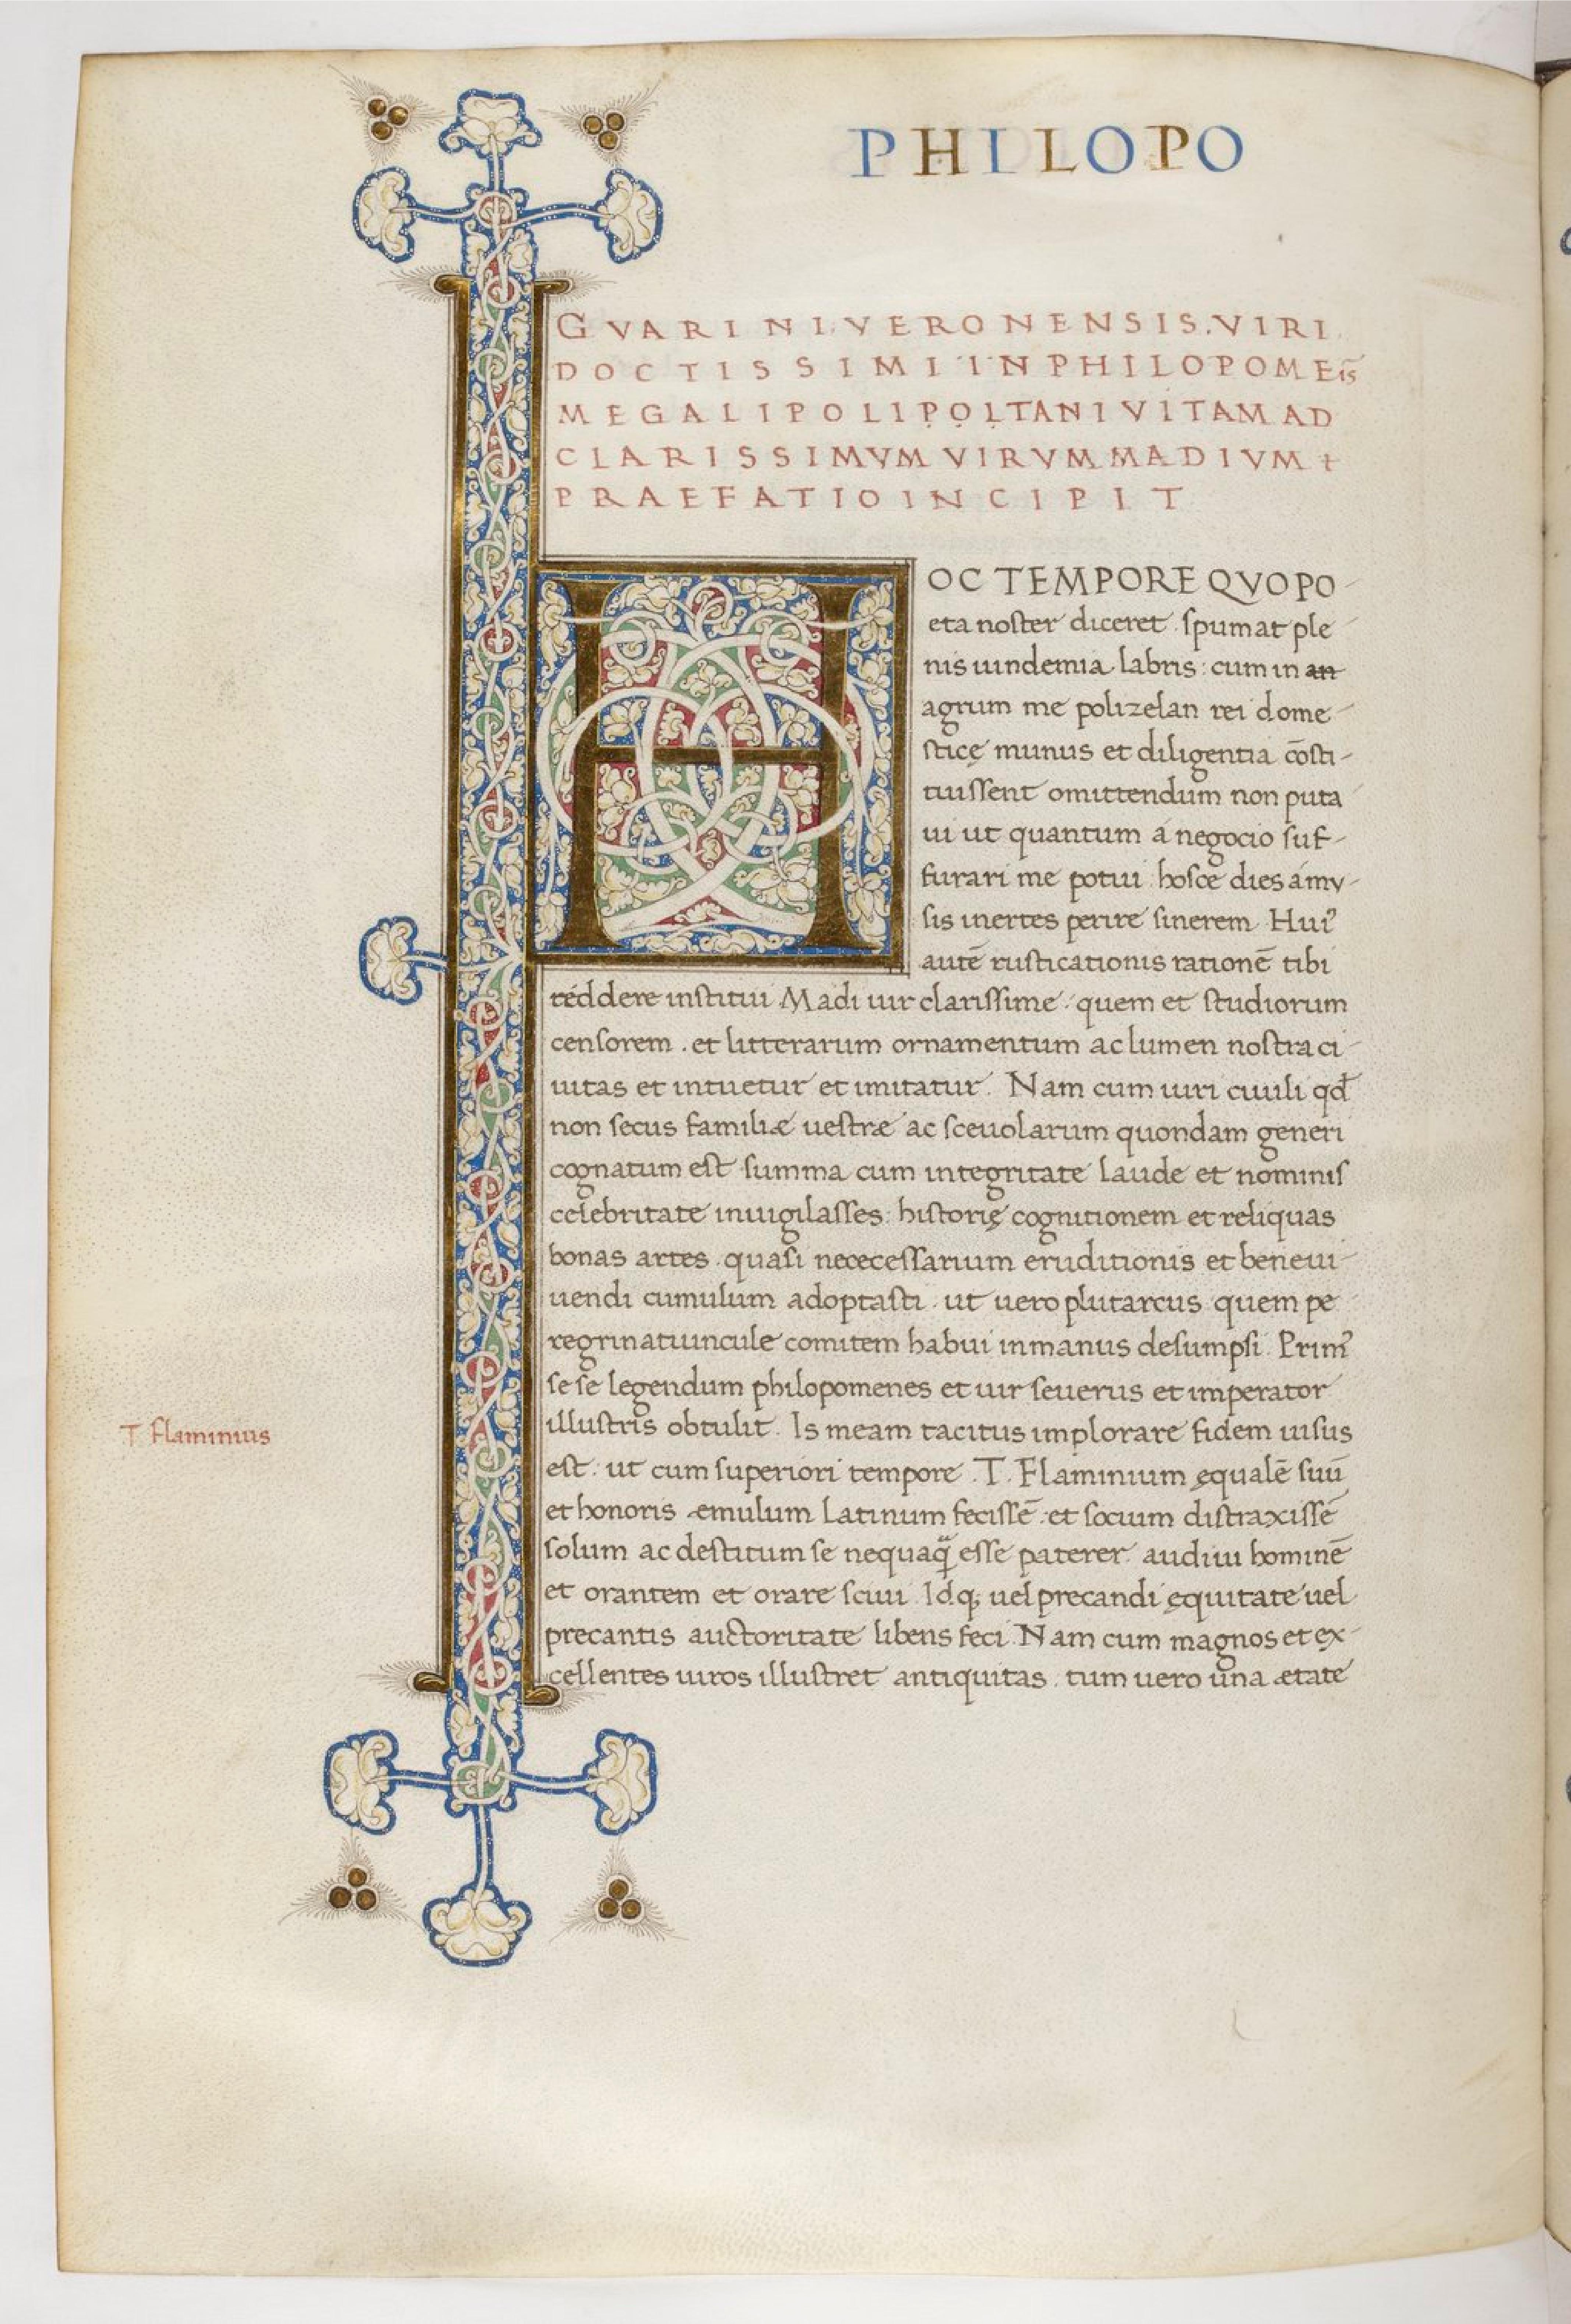 PHILOPO
GVARINI.VERONENSIS.VIRI
DOCTISSIMI IN PHILOPOMEīs
MEGALIPOLIPOLTANI VITAM AD
CLARISSIMVM VIRVM MADIVM +
PRAEFATIO INCIPIT
HOC TEMPORE QVO PO
eta noster diceret. spumat ple
nis uindemia labris: cum in an
agrum me polizelan rei dome
sticę munus et diligentia cōsti-
tuissent omittendum non puta
ui ut quantum á negocio suf-
furari me potui: hosce dies á my
sis inertes perire sinerem. Hui⁹
autē rusticationis rationē tibi
réddere institui Madi uir clarissime: quem et studiorum
censorem. et litterarum ornamentum ac lumen nostra ci
uitas et intuetur et imitatur. Nam cum iuri ciuili qd̄
non secus familiæ uestræ ac sceuolarum quondam generi
cognatum est summa cum integritate laude et nominis
celebritate inuigilasses: historię cognitionem et reliquas
bonas artes. quasi nececessarium eruditionis et bene ui
uendi cumulum adoptasti. ut uero plutarcus quem pe
regrinatiuincule comitem habui in manus desumpsi. Prim⁹
se se legendum philopomenes et uir seuerus et imperator
illustris obtulit. Is meam tacitus implorare fidem uisus
T. flaminius
est: ut cum superiori tempore. T. Flaminium ęqualē suū
et honoris æmulum Latinum fecissē: et socium distraxissē
solum ac destitum se nequaq̄ esse paterer. audiui hominē
et orantem et orare sciui. Idq; uel precandi ęquitate uel
precantis auctoritate libens feci. Nam cum magnos et ex-
cellentes uiros illustret antiquitas. tum uero una ætate